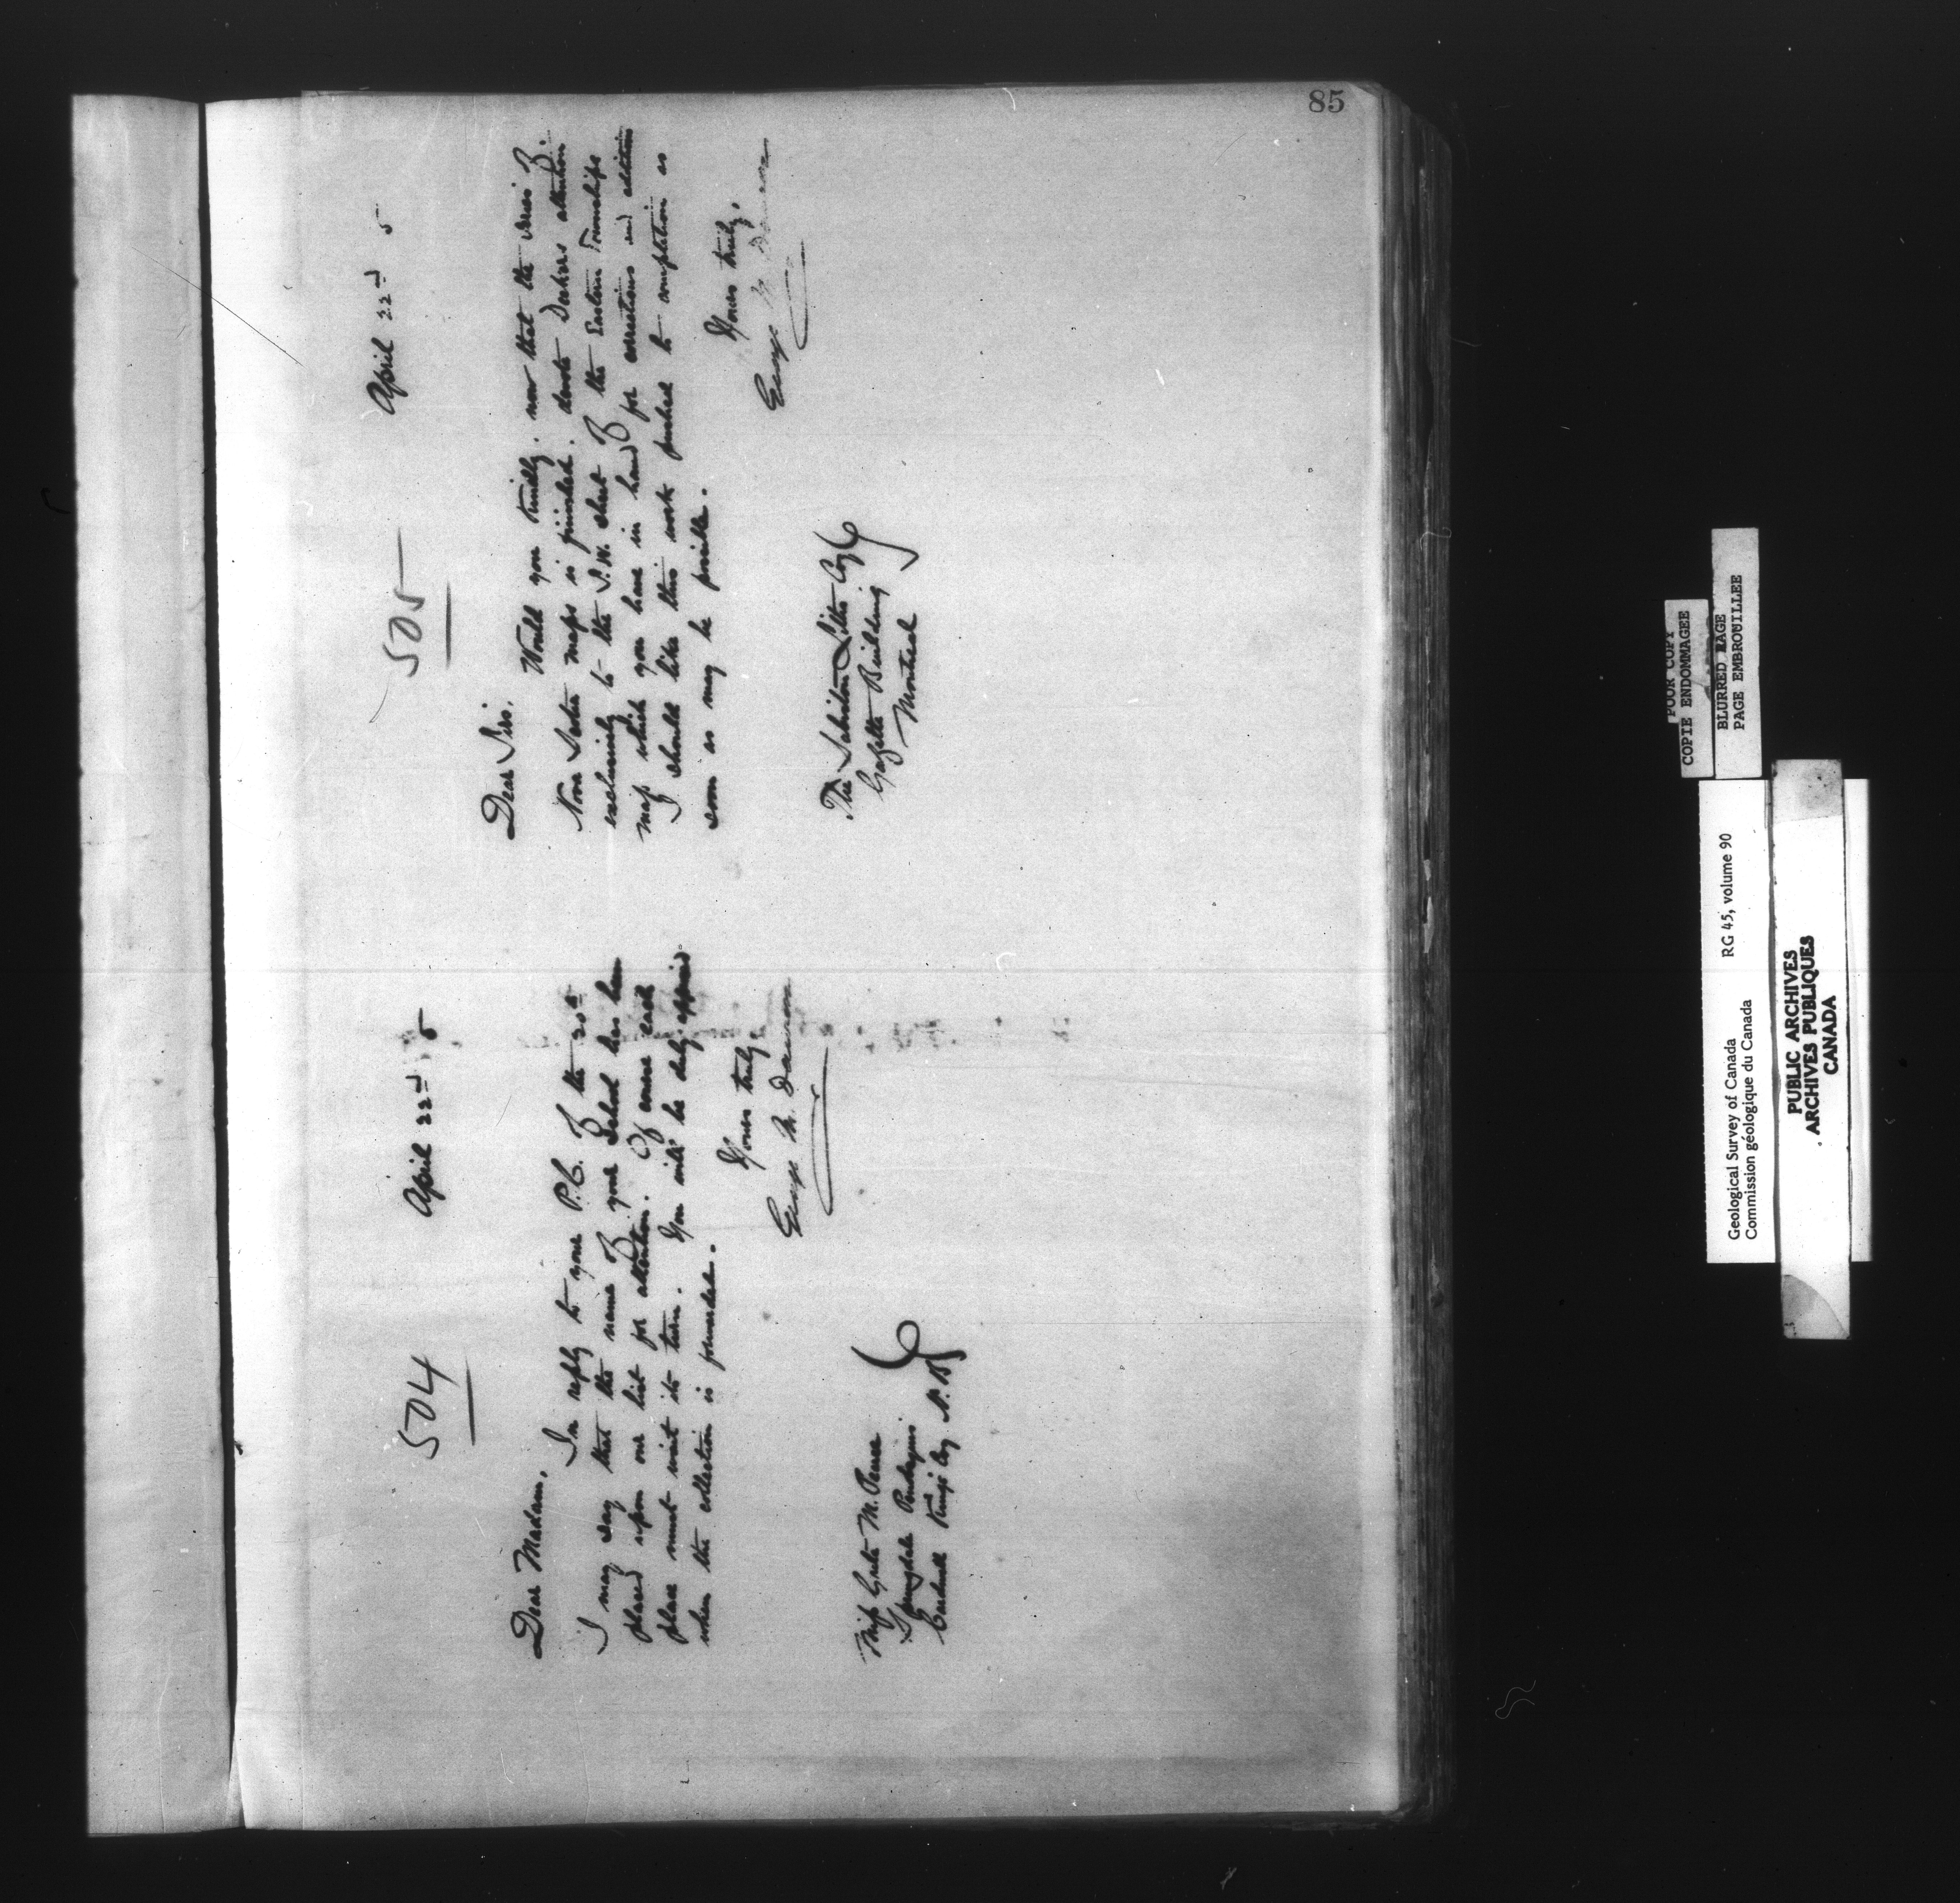 85
504
April 22nd 5
Dear Madam,
In reply to your P.C. of the 20th
I may say that the name of your School has been
placed upon our list for attention. Of course each
place must wait its turn. You will be duly apprised
when the collection is forwarded.
Yours truly,
George M. Dawson
Miss Greta M.
Springdale
Cardwell Kings Coy N.B.
505
April 22nd 5
Dear Sirs,
Would you kindly, now that the series of
Nova Scotia maps is finished, devote attention
exclusively to the S.W. sheet of the Eastern Townships
map which you have in hand for corrections and addition
I should like this work pushed to completion as
soon as may be possible.
Yours truly,
George M Dawson
The Sabiston Litho Coy
Gazette Building
Montreal
POOR COPY
COPIE ENDOMMAGEE
BLURRED PAGE
PAGE EMBROUILLEE
Geological Survey of Canada RG 45, volume 90
Commission géologique du Canada
PUBLIC ARCHIVES
ARCHIVES PUBLIQUES
CANADA